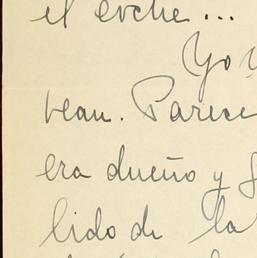 el coche...
Yo
bean. Parece
era dueño y
lido de la